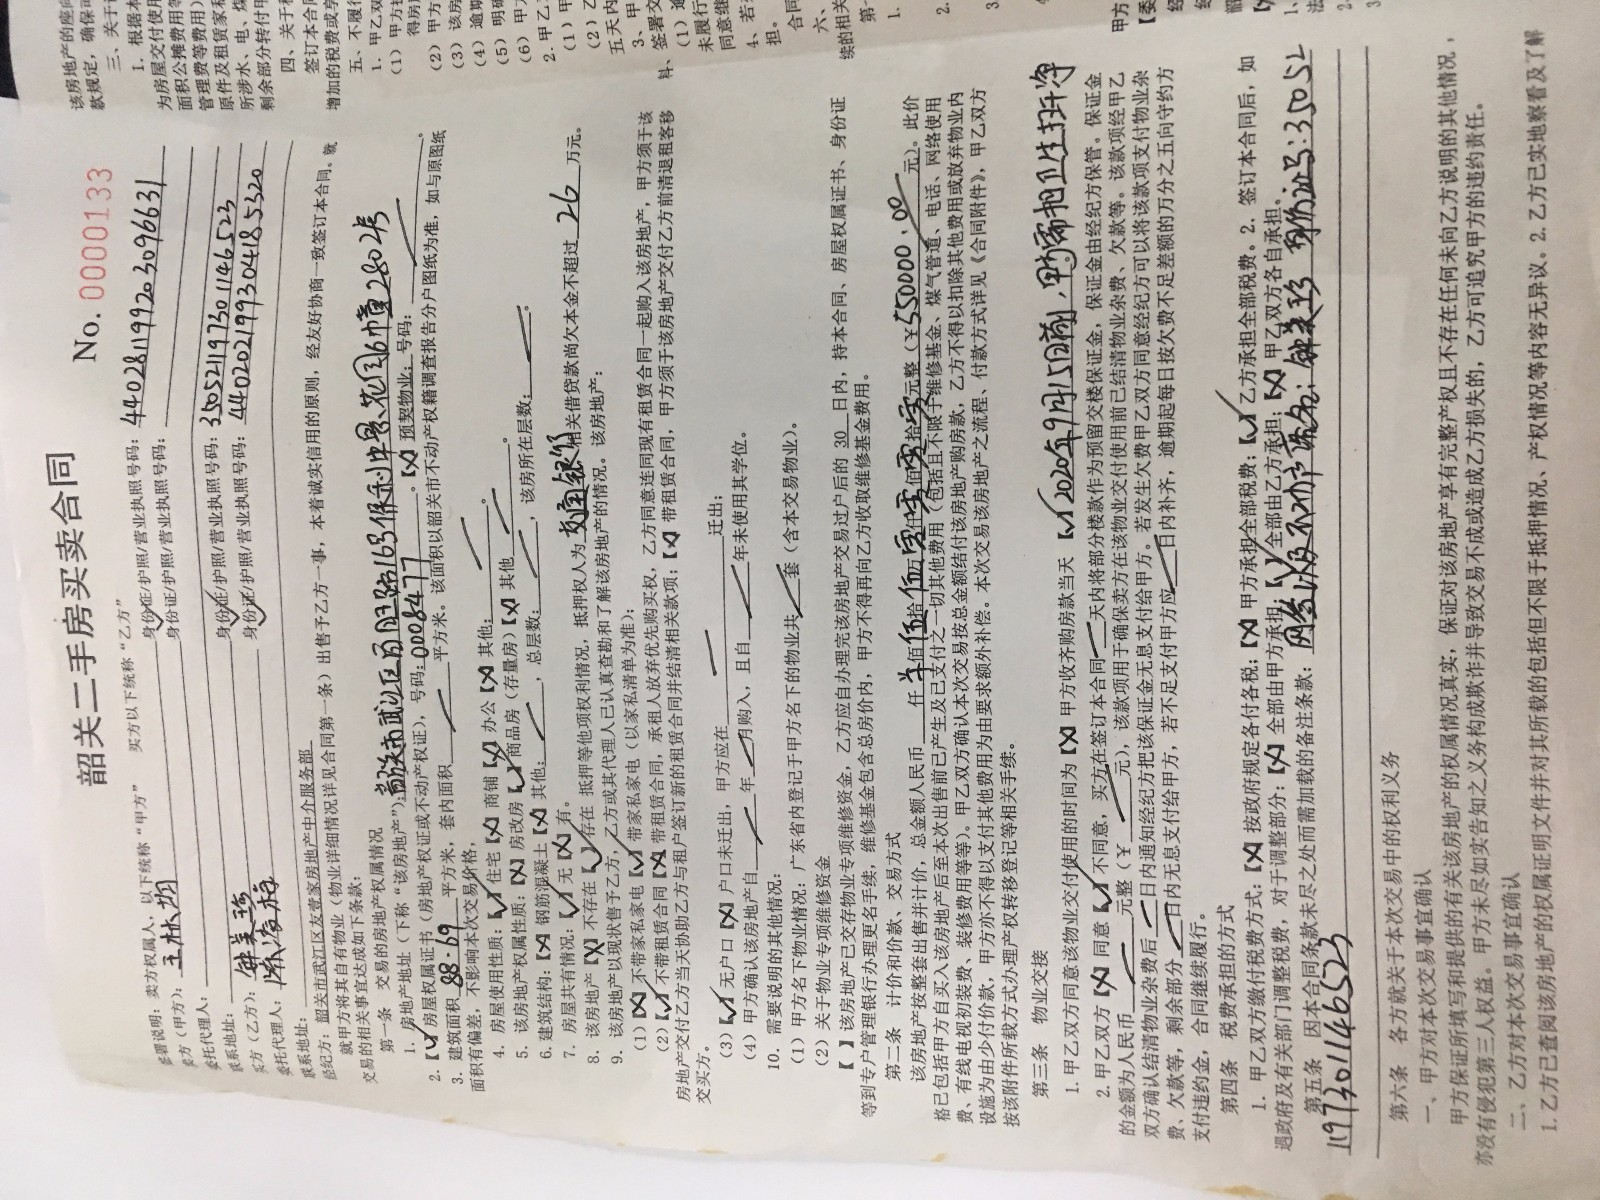 韶关二手房买卖合同
No. 0000133
签署说明：卖方权属人，以下统称“甲方” 买方以下统称“乙方”
卖方（甲方）： 身份证/护照/营业执照号码：440281199203096631
委托代理人： 身份证/护照/营业执照号码：
联系地址：
买方（乙方）：钟美珍 身份证/护照/营业执照号码：350521197301146523
委托代理人： 身份证/护照/营业执照号码：440202199304185320
联系地址：
经纪方：韶关市武江区友壹家房地产中介服务部
就甲方将其自有物业（物业详细情况详见合同第一条）出售予乙方一事，本着诚实信用的原则，经友好协商一致签订本合同。就
交易的相关事宜达成如下条款：
第一条 交易的房地产权属情况
1. 房地产地址（下称“该房地产”）：韶关市武江区百旺路163保利中景花园6幢2802号
2.【✓】房屋权属证书（房地产权证或不动产权证），号码：0008477。【X】预契物业：号码：
3. 建筑面积 88.69 平方米，套内面积 平方米。该面积以韶关市不动产权籍调查报告分户图纸为准，如与原图纸
面积有偏差，不影响本次交易价格，
4. 房屋使用性质：【✓】住宅【X】商铺【X】办公【X】其他：
5. 该房地产权属性质：【X】房改房【✓】商品房（存量房）【X】其他 。
6. 建筑结构：【X】钢筋混凝土【X】其他： ，总层数： ，该房所在层数： 。
7. 房屋共有情况：【✓】无【X】有。
8. 该房地产【X】不存在【✓】存在 抵押等他项权利情况，抵押权人为 交通银行 相关借贷款尚欠本金不超过 26 万元。
9. 该房地产以现状售予乙方，乙方或其代理人已认真查勘和了解该房地产的情况。该房地产：
（1）【X】不带家私家电【✓】带家私家电（以家私清单为准）；
（2）【✓】不带租赁合同【X】带租赁合同，承租人放弃优先购买权，乙方同意连同现有租赁合同一起购入该房地产，甲方须于该
房地产交付乙方当天协助乙方与租户签订新的租赁合同并结清相关款项；【X】带租赁合同，甲方须于该房地产交付乙方前清退租客移
交买方。
（3）【✓】无户口【X】户口未迁出，甲方应在 迁出；
（4）甲方确认该房地产自 年 月购入，且自 年未使用其学位。
10. 需要说明的其他情况：
（1）甲方名下物业情况：广东省内登记于甲方名下的物业共 套（含本交易物业）。
（2）关于物业专项维修资金
【 】该房地产已交存物业专项维修资金，乙方应自办理完该房地产交易过户后的 30 日内，持本合同、房屋权属证书、身份证
等到专户管理银行办理更名手续，维修基金包含总房价内，甲方不得再向乙方收取维修基金费用。
第二条 计价和价款、交易方式
该房地产按整套出售并计价，总金额人民币 仟 佰 拾 万 仟 佰 拾 元整（￥550000.00元）。此价
格已包括甲方自买入该房地产后至本次出售前已产生及已支付之一切其他费用（包括且不限于维修基金、煤气管道、电话、网络使用
费、有线电视初装费、装修费用等等）。甲乙双方确认本次交易按总金额结付该房地产购房款，乙方不得以扣除其他费用或放弃物业内
设施为由少付价款，甲方亦不得以支付其他费用为由要求额外补偿。本次交易该房地产之流程、付款方式详见《合同附件》，甲乙双方
按该附件所载方式办理产权转移登记等相关手续。
第三条 物业交接
1. 甲乙双方同意该物业交付使用的时间为【X】甲方收齐购房款当天【✓】2020年9月15日前，甲方需把卫生打扫干净
2. 甲乙双方【X】同意【✓】不同意，买方在签订本合同 天内将部分楼款作为预留交楼保证金，保证金由经纪方保管。保证金
的金额为人民币 元整（￥ 元），该款项用于确保卖方在该物业交付使用前已结清物业杂费、欠款等。该款项经甲乙
双方确认结清物业杂费后 日内通知经纪方把该保证金无息支付给甲方，若发生欠费甲乙双方同意经纪方可以将该款项支付物业杂
费、欠款等，剩余部分 日内无息支付给甲方，若不足支付甲方应 日内补齐，逾期起每日按欠费不足差额的万分之五向守约方
支付违约金，合同继续履行。
第四条 税费承担的方式
1. 甲乙双方缴付税费方式：【X】按政府规定各付各税；【X】甲方承担全部税费；【✓】乙方承担全部税费。2. 签订本合同后，如
遇政府及有关部门调整税费，对于调整部分：【X】全部由甲方承担；【✓】全部由乙方承担；【X】甲乙双方各自承担。
第五条 因本合同条款未尽之处而需加载的备注条款： 钟美珍 身份证号：35052
1197301146523
第六条 各方就关于本次交易中的权利义务
一、甲方对本次交易事宜确认
甲方保证所填写和提供的有关该房地产的权属情况真实，保证对该房地产享有完整产权且不存在任何未向乙方说明的其他情况，
亦没有侵犯第三人权益。甲方未尽如实告知之义务构成欺诈并导致交易不成或造成乙方损失的，乙方可追究甲方的违约责任。
二、乙方对本次交易事宜确认
1. 乙方已查阅该房地产的权属证明文件并对其所载的包括但不限于抵押情况、产权情况等内容无异议。2. 乙方已实地察看及了解
该房地产的座向
款规定，确保
三、关于
1. 根据本
为房屋交付使用
面积公摊费用等
管理费等费用）
原件及租赁家
所涉水、电、
剩余部分转付甲
四、关于
签订本合同
增加的税费或
五、不履行
1. 甲乙双
（1）甲方
得房
（2）甲方
（3）该房
（4）逾期
（5）明确
（6）甲
2. 甲乙
（1）甲
（2）乙
五天内
3、甲
签署交
（1）
未履行
同意继
4、若
担。
合同
六、
续的相关
第一
1.
2.
3.
甲方
【委